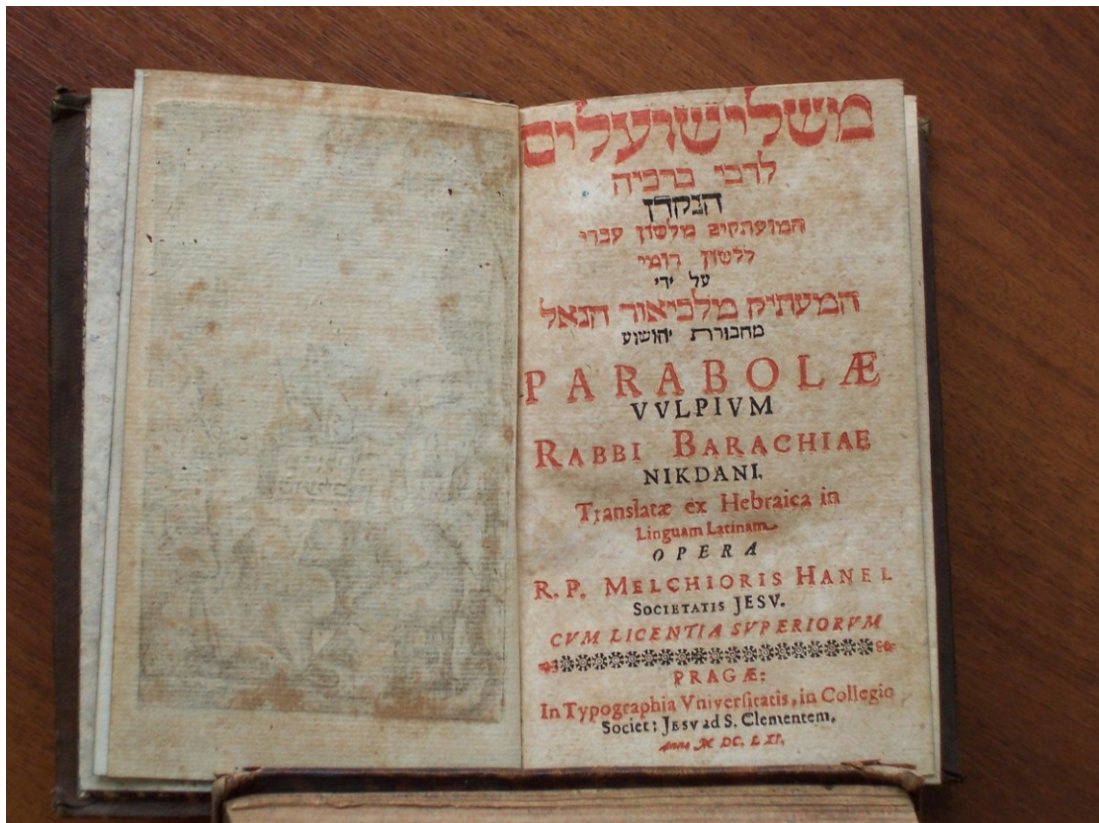 משלי שועלים
לרבי ברכיה
הנקדן
המועתקים מלשון עברי
ללשון רומי
על ידי
המעתיק מלכיאור הנאל
מחבורת יהושוע
PARABOLÆ
VVLPIVM
RABBI BARACHIAE
NIKDANI.
Translatæ ex Hebraica in
Linguam Latinam
OPERA
R. P. MELCHIORIS HANEL
SOCIETATIS JESV.
CVM LICENTIA SVPERIORVM
PRAGÆ:
In Typographia Vniversitatis, in Collegio
Societ: JESV ad S. Clementem,
Anno M. DC. L XI.